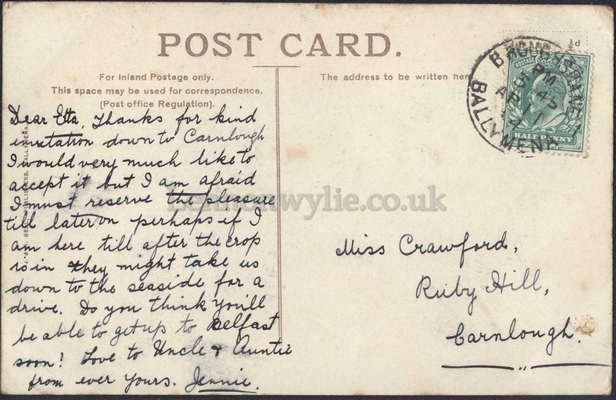 POST CARD.
For Inland Postage only.
This space may be used for correspondence.
(Post office Regulation).
The address to be written here
½d
HALF PENNY
BALLYMENA
Dear Etta, Thanks for kind
invitation down to Carnlough
I would very much like to
accept it but I am afraid
I must reserve the pleasure
till later on perhaps if I
am here till after the crop
is in they might take us
down to the seaside for a
drive. Do you think you'll
be able to get up to Belfast
soon? Love to Uncle & Auntie
from ever yours. Jennie.
Miss Crawford,
Ruby Hill,
Carnlough.
wylie.co.uk